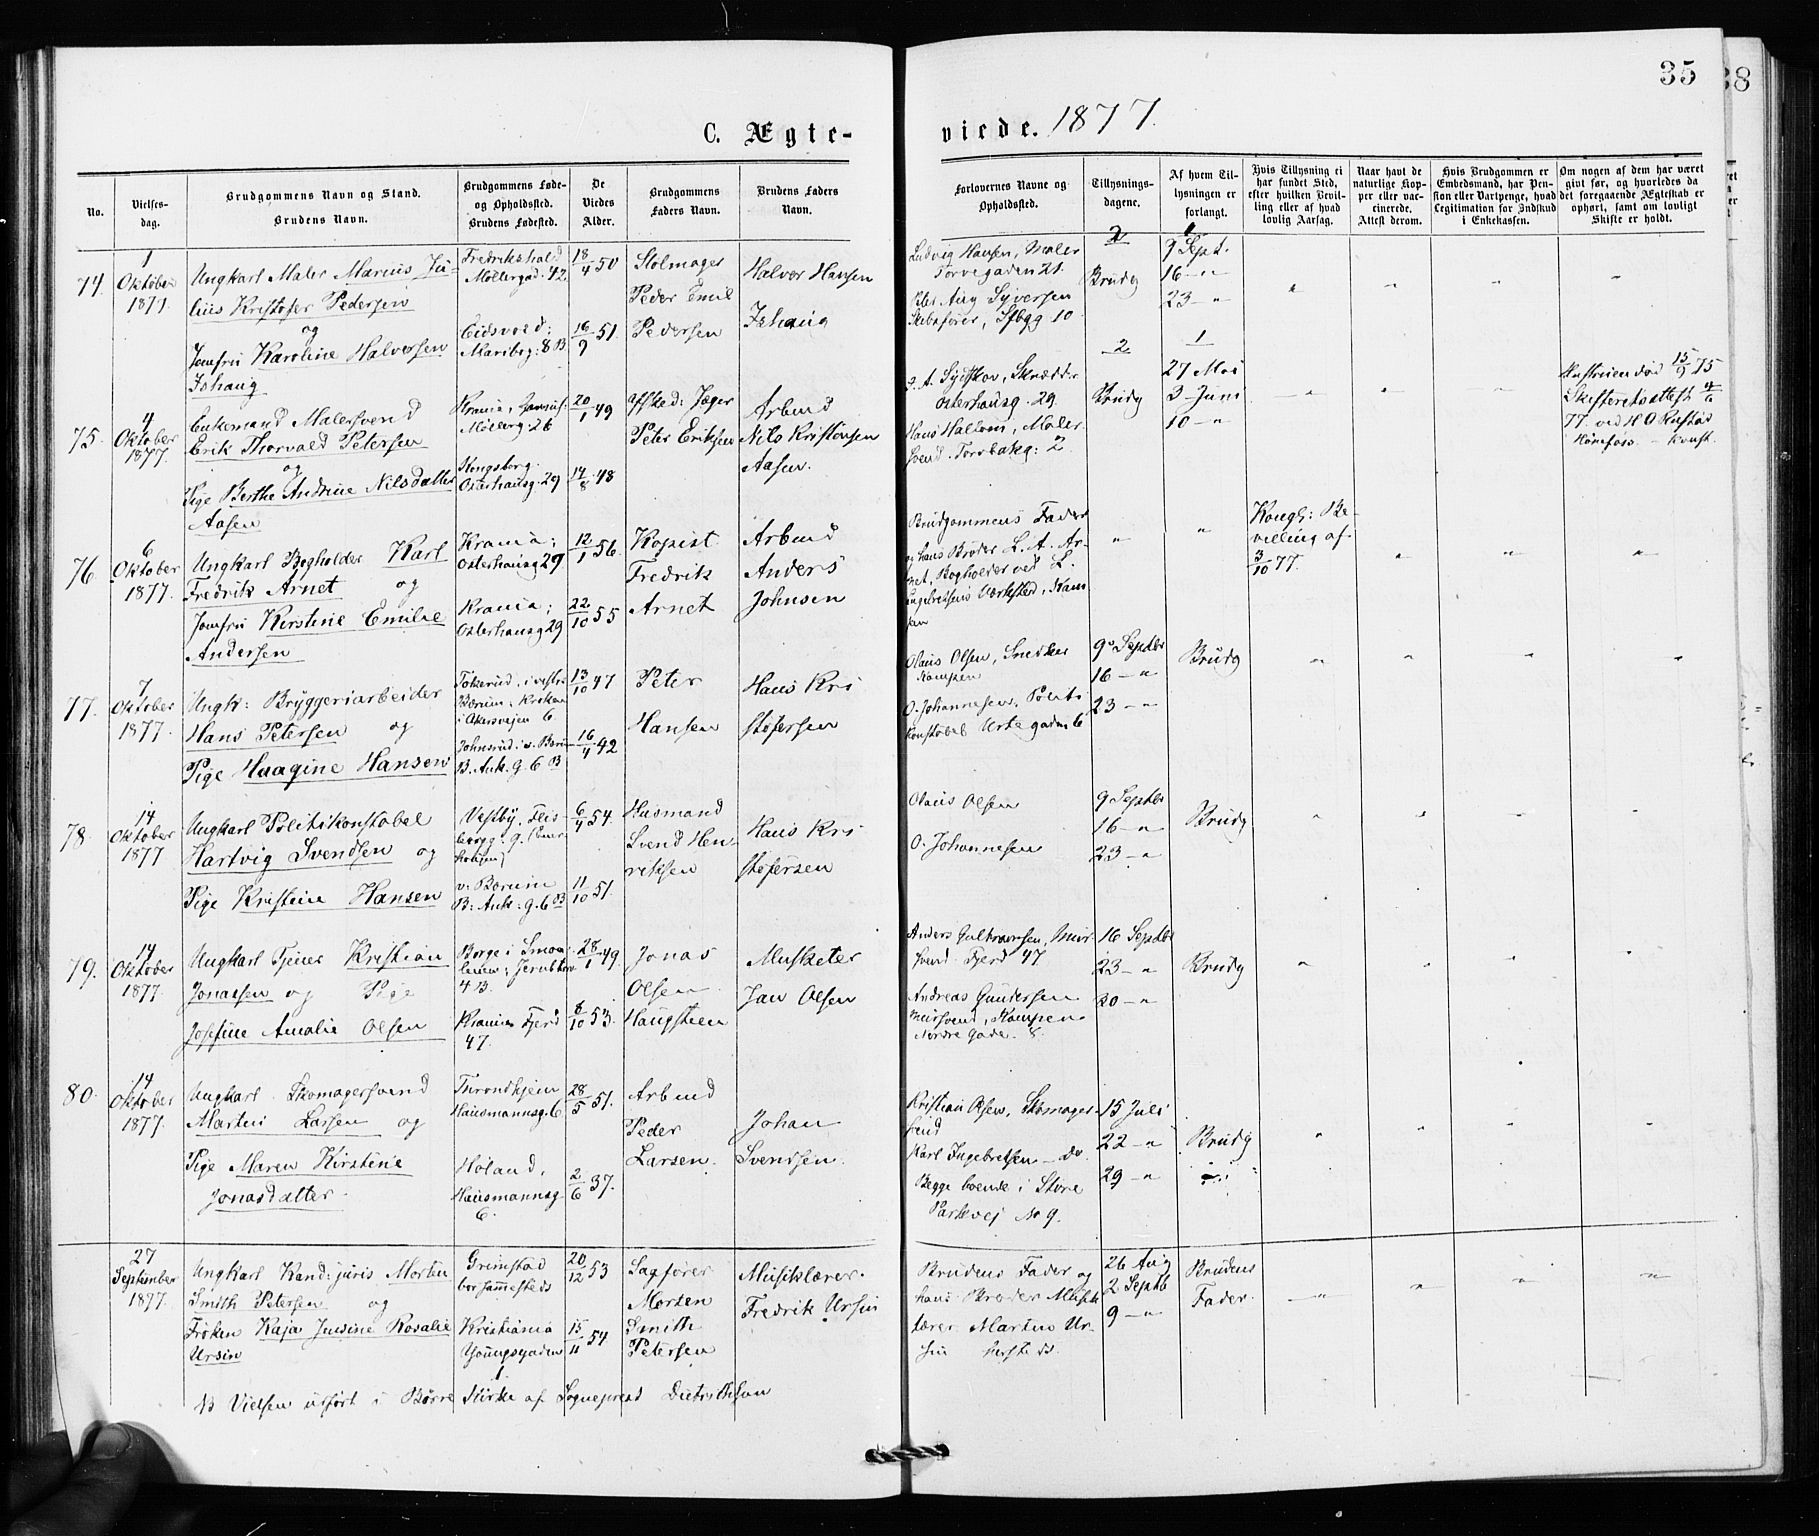 35
38
C. Ægte-
viede. 1877.
No.
Vielses-
dag.
Brudgommens Navn og Stand.
Brudens Navn.
Brudgommens Føde-
og Opholdssted.
Brudens Fødested.
De
Viedes
Alder.
Brudgommens
Faders Navn.
Brudens Faders
Navn.
Forlovernes Navne og
Opholdssted.
Tillysnings-
dagene.
Af hvem Til-
lysningen er
forlangt.
Hvis Tillysning ei
har fundet Sted,
efter hvilken Bevil-
ling eller af hvad
lovlig Aarsag.
Naar havt de
naturlige Kop-
per eller vac-
cinerede.
Attest derom.
Hvis Brudgommen er
Embedsmand, har Pen-
sion eller Vartpenge, hvad
Legitimation for Indskud
i Enkekassen.
Om nogen af dem har været
gift før, og hvorledes da
det foregaaende Ægteskab er
ophørt, samt om lovligt
Skifte er holdt.
74.
1
Oktober
1877.
Ungkarl Maler Marius Ju-
lius Kristofer Pedersen
og
Jomfru Karoline Halversen
Ishaug
Fredrikshald
Møllergad: 42
Eidsvold;
Maribog: 8 B
18/4 50
16/9 51.
Stolmager
Peder Emil
Pedersen
Halvor Hansen
Ishaug
Ludvig Hansen, Maler
Torvegaden 21.
Aug Syversen
Skibsfører,
2
Brudg
1
9 Sept.
16 - "
23 - "
75.
4
Oktober
1877.
Enkemand Malersvend
Erik Thorvald Petersen
og
Pige Berthe Andrine Nilsdatter
Aasen
Krania,
Møllerg: 26
Kongsberg.
Osterhausg: 29
20/1 49
14/8 48
Afsked: Jæger
Peter Eriksen
Arbmd
Nils Kristensen
Aasen.
Skrædder
Osterhausg. 29
Hans Maler
svend. Torvbakg: 2
2
Brudg
1
27 Mai
3 Juni
10 - "
Hustruen død 15/9 75
Skifteretsattest 4/6
77. ved
Hønefoss
76
6
Oktober
1877.
Ungkarl Bogholder Karl
Fredrik Arnet og
Jomfru Kirstine Emilie
Andersen
Krania;
Osterhausg 29
Krania;
Osterhausg 29
12/1 56.
22/10 55
Kopist
Fredrik
Arnet
Arbmd
Anders
Johnsen
Brudgommens Fader
og hans Broder L. A. Ar-
net, Bogholder ved L.
Ingebretsens Værksted, Kam
pen
Kongl: Be-
villing af
3/10 77.
77.
7
Oktober
1877.
Ungk: Bryggeriarbeider
Hans Petersen og
Pige Haagine Hansen
i vestre
Bærum;
i Akersvejen 6
Johnsrud i v. Bærum
B. Ank. g. 6 B
13/10 47
16/4 42
Peter
Hansen
Hans Kri
stofersen
Olaus Olsen, Snedker
Kampen
O. Johannesen, Politi
konstabel Urtegaden 6
9 Septbr
16 - "
23 - "
Brudg
78.
14
Oktober
1877
Ungkarl Politikonstabel
Hartvig Svendsen og
Pige Kristine Hansen
Vestby,
v: Bærum
B: Ank: g. 6 B
6/4 54.
11/10 51.
Husmand
Svend Hen-
riksen
Hans Kri
stofersen
Olaus Olsen
O. Johannesen
9 Septbr
16 - "
23 - "
Brudg
79.
14
Oktober
1877.
Ungkarl Tjener Kristian
Jonassen og Pige
Josefine Amalie Olsen
Borge i Smaa-
lenene;
4 B.
Krania Fjerd
47.
28/1 49.
8/10 53.
Jonas
Olsen
Haugsteen
Musketer
Jan Olsen
Anders Mur-
svend. Fjerd 47
Andreas Gundersen
Mursvend, Kampen
Nordre Gade. 8.
16 Septbr
23 - "
30 - "
Brudg
80.
14
Oktober
1877.
Ungkarl. Skomagersvend
Martin Larsen og
Pige Maren Kirstine
Jonasdatter.
Throndhjem
Hausmannsg. 6
Høland,
Hausmannsg.
6.
28/5 51.
2/6 37.
Arbmd
Peder
Larsen.
Johan
Svendsen.
Kristian Olsen, Skomager-
svend
Karl Ingebretsen - do
Begge boende i Store
Parkvej No 9.
15 Juli
22 - "
29 - "
Brudg
27
September
1877.
Ungkarl Kand: juris Morten
Smith Petersen og
Frøken Kaja Jensine Rosalie
Ursin
Grimstad
bor sammesteds
Kristiania
Youngsgaden
1
20/12 53
15/11 54
Sagfører
Morten
Smith
Petersen
Musiklærer.
Fredrik Ursin
Brudens Fader og
hans Broder Musik
lærer Martin Ur-
sin hersteds.
26 Aug
2 Septb
9 - "
Brudens
Fader.
NB Vielsen utført i Børre Kirke af Sogneprest Dietrichson